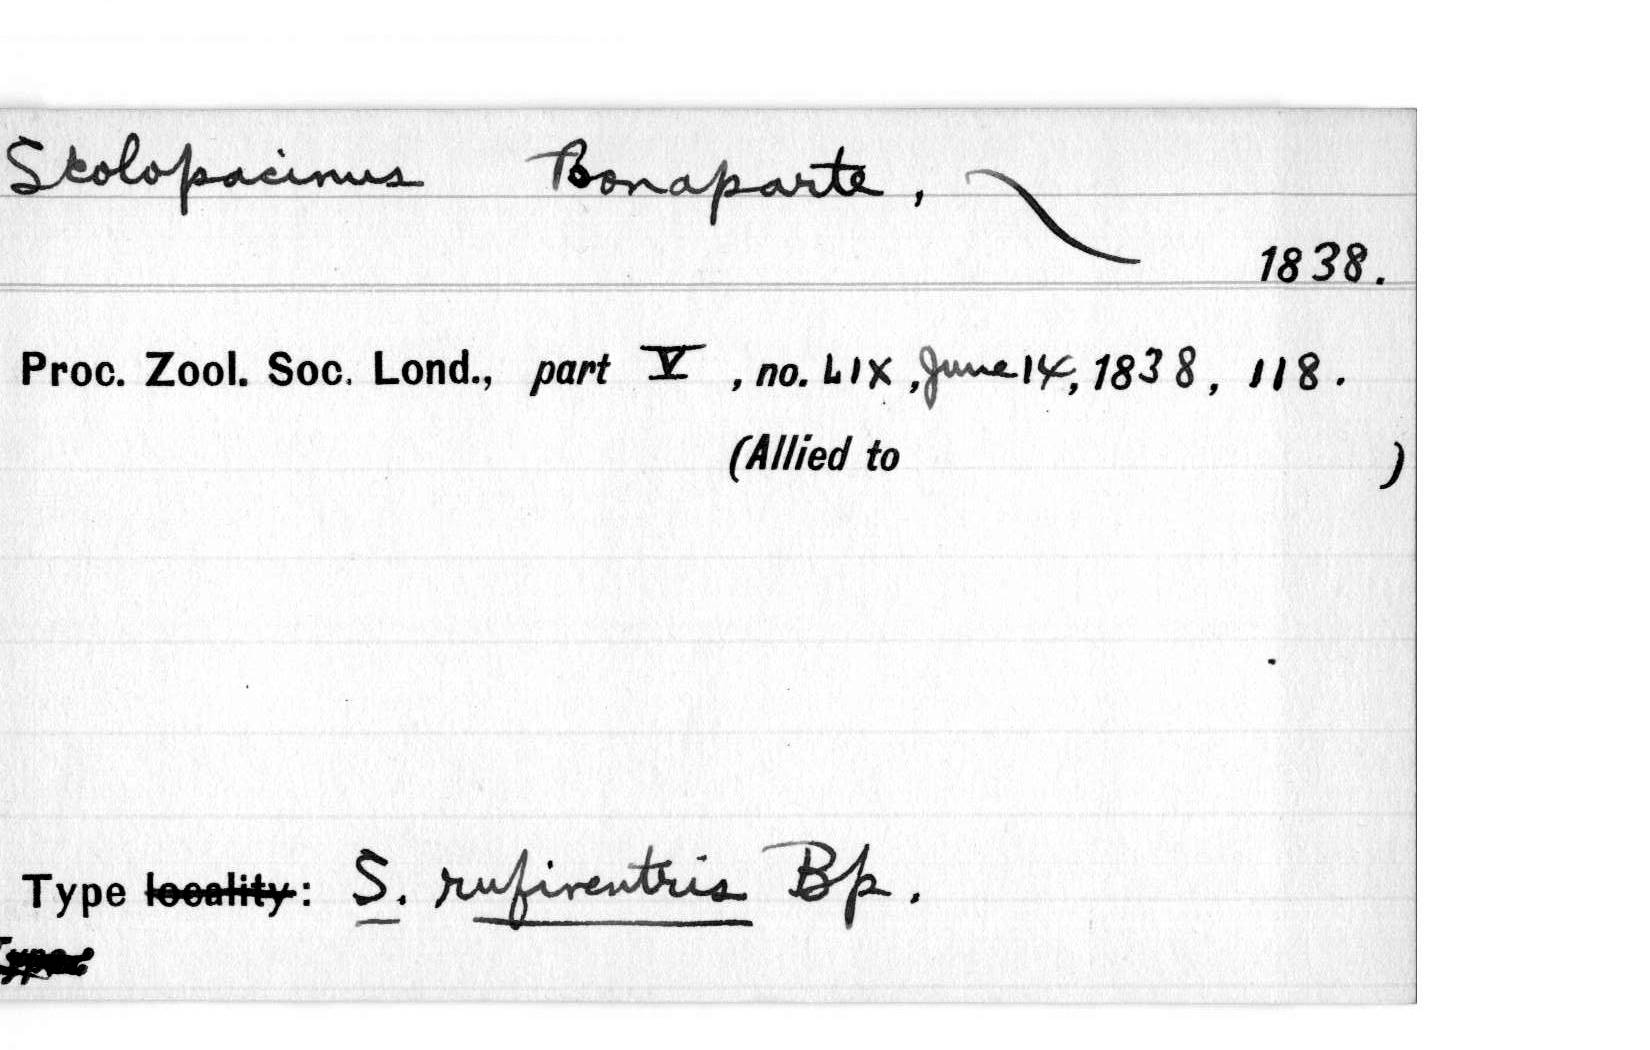 Scolopacinus Bonaparte,
1838.
Proc. Zool. Soc. Lond., part V, no. LIX, June 14, 1838, 118.
(Allied to )
Type locality: S. rufiventris Bp.
Type